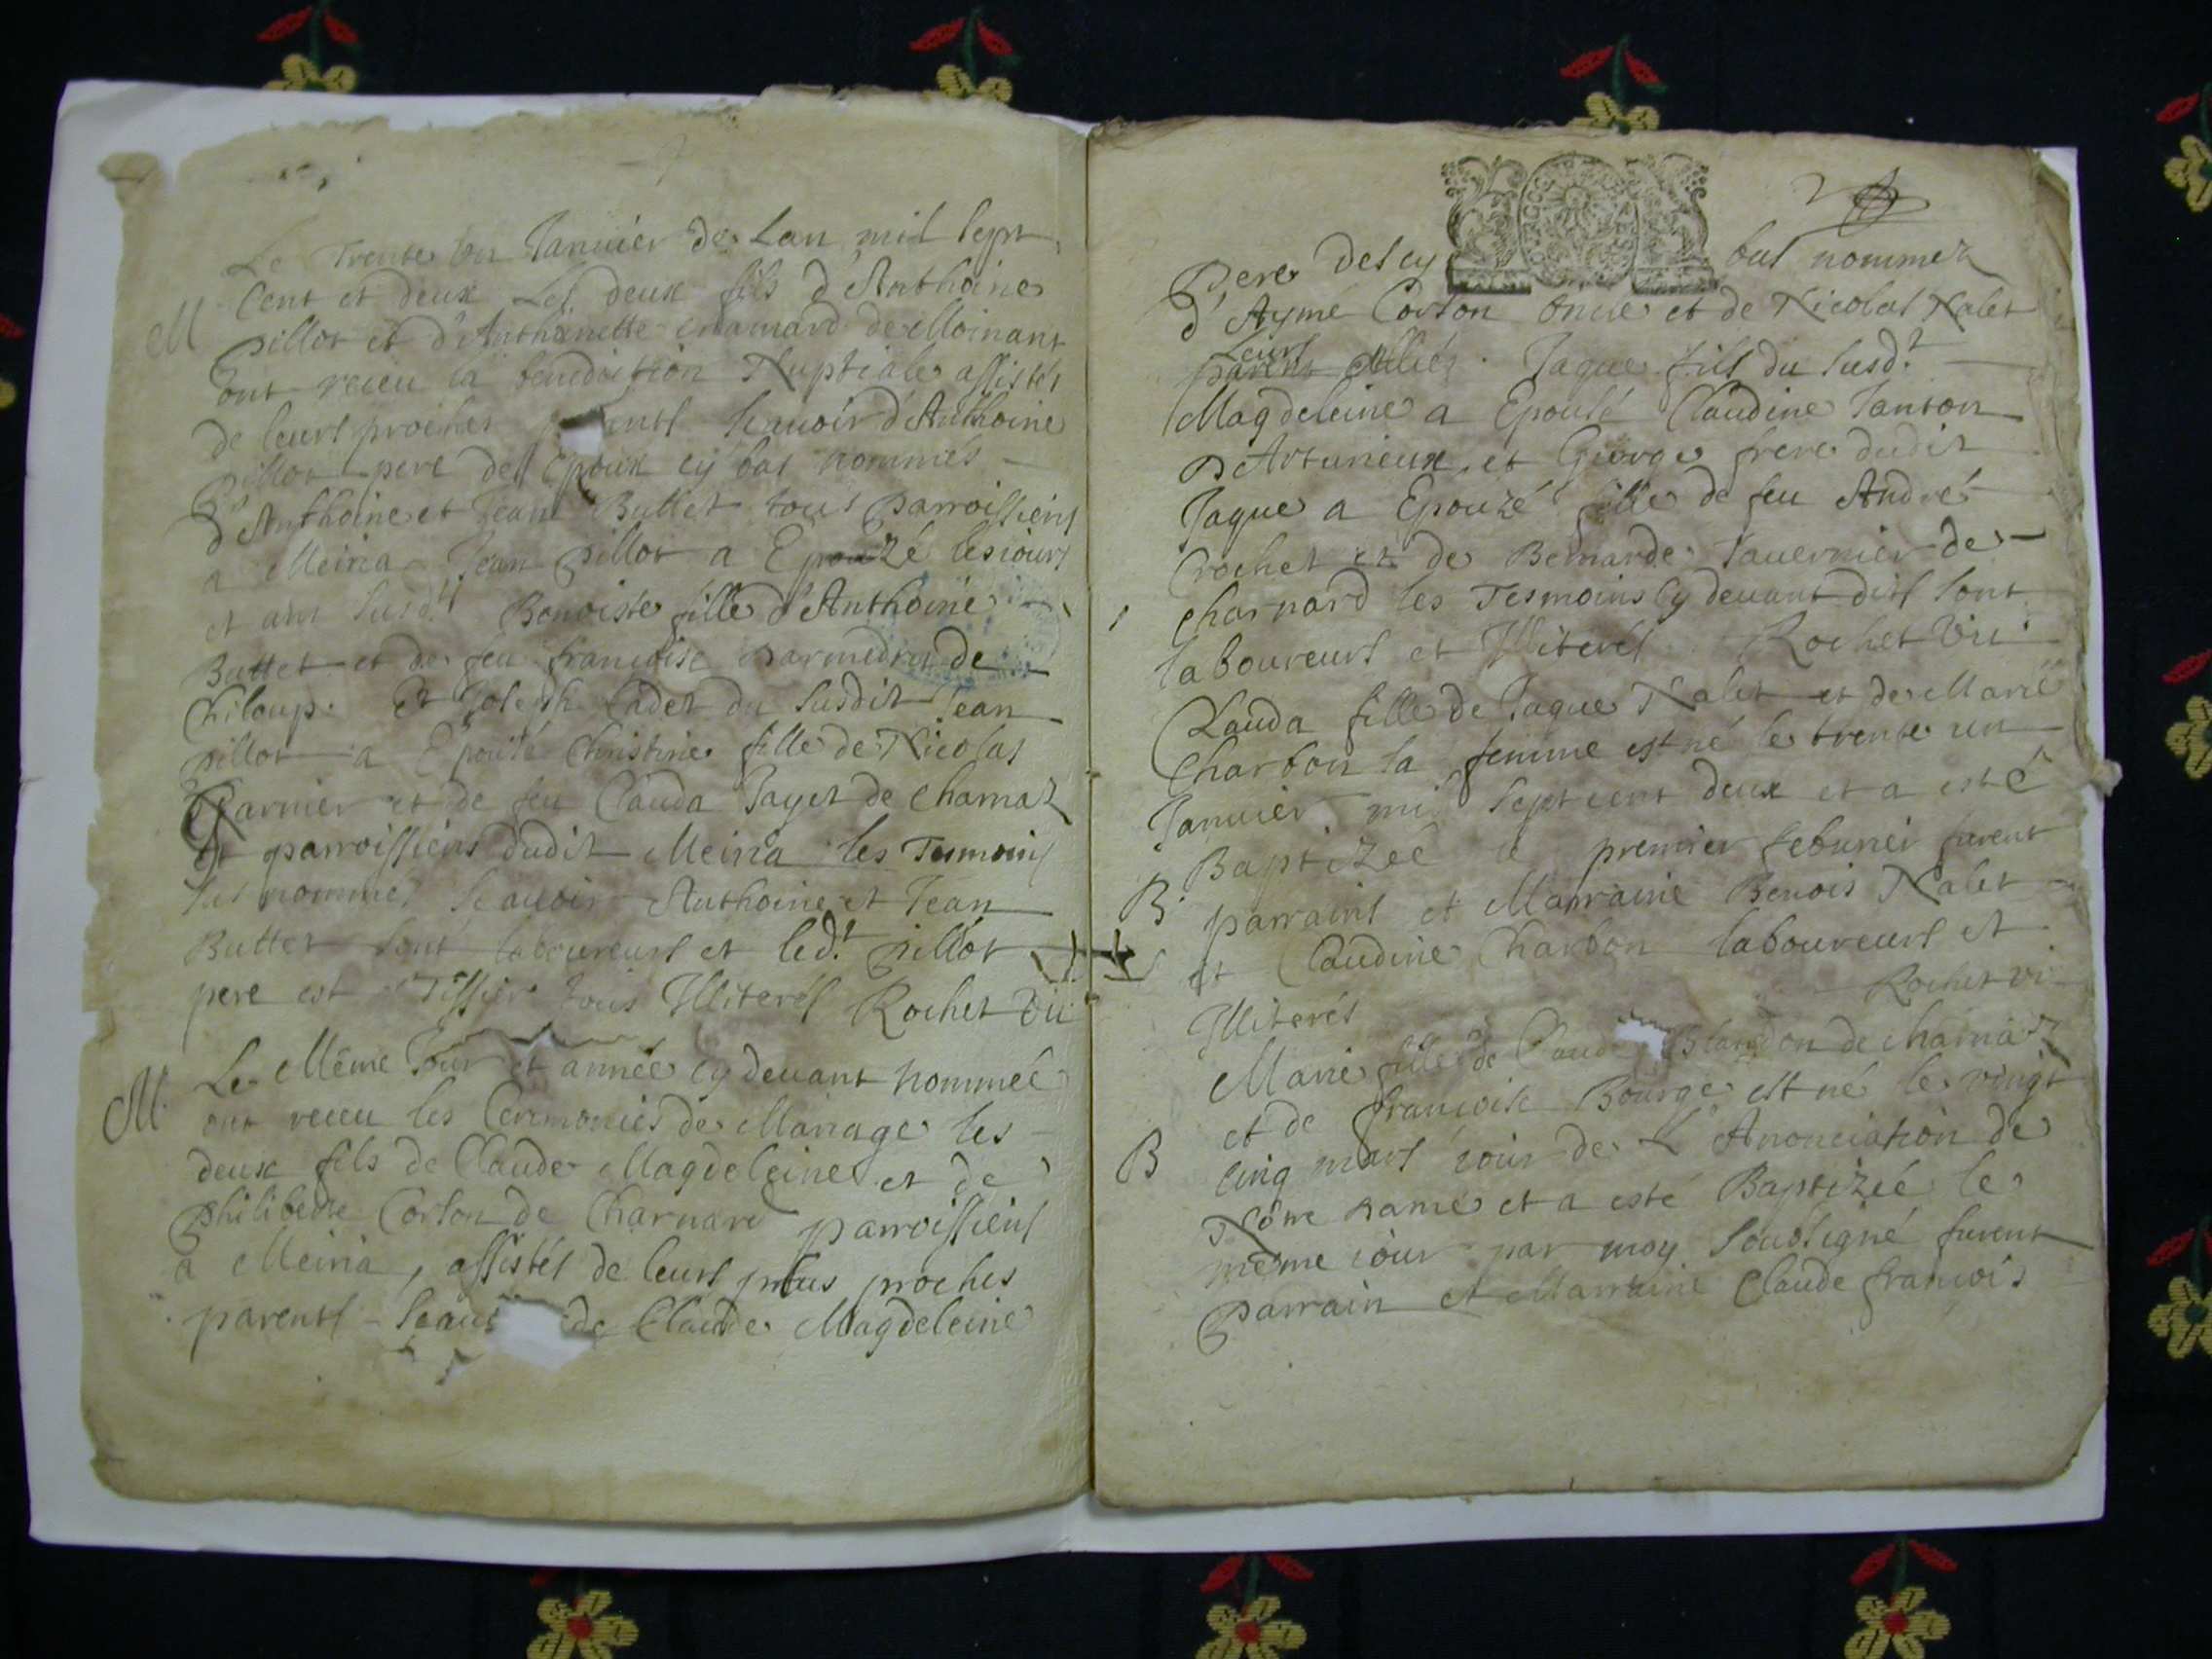 Le Trente un Januier de Lan mil sept
M Cent et deux Les deux fils d'Anthoine
pillot et d'Anthoinette chamard de Moinant
ont receu la benediction Nuptiale assistés
de leurs proches scauoir d'Anthoine
pillot pere des Epoux cy bas nommés
d'Anthoine et Jean Buttet tous parroissiens
a Meiria Jean pillot a Epouzé les iours
et an susd.ts Benoiste fille d'Anthoine
Buttet et de feu francoise de
Chiloup. Et Joseph Cadet du susdit Jean
pillot a Epousé Christine fille de Nicolas
Garnier et de feu Clauda Payet de Charnaz
et parroissiens dudit Meiria les Temoins
sus nommés scauoir Anthoine et Jean
Buttet sont laboureurs et led.t pillot
pere est Tissier tous Illiterés Rochet Vic
M. Le Même Jour et année cy deuant nommée
ont receu les Ceremonies de Mariage les
deux fils de Claude Magdeleine et de
philiberte Corton de Charnard parroissiens
a Meiria, assistés de leurs plus proches
parents scauo de Claude Magdeleine
2
Pere des cy bas nommez
d'Aymé Corton oncle et de Nicolas Nalet
Leurs
parents alliez. Jaque fils du susd.t
Magdeleine a Epousé Claudine Janton
D'Arturieux, et George frere dudit
Jaque a Epouzé fille de feu André
Crochet et de Bernarde Tauernier de
Charnard les Tesmoins cy deuant dits sont
laboureurs et Illiterés Rochet Vic
Clauda fille de Jaque Nalet et de Marie
Charbon sa femme est né le trente un
Januier mil sept cent deux et a esté
Baptizée le premier feburier furent
B. parrains et Marraine Benois Nalet
et Claudine Charbon laboureurs et
Illiterés Rochet vi
Marie fille de Claude Blandon de Charnaz
et de francoise Bourge est né le vingt
B cinq mars iour de L'Anonciation de
Nôtre Dame et a esté Baptizée le
même iour par moy soubsigné furent
parrain et Marraine Claude francois